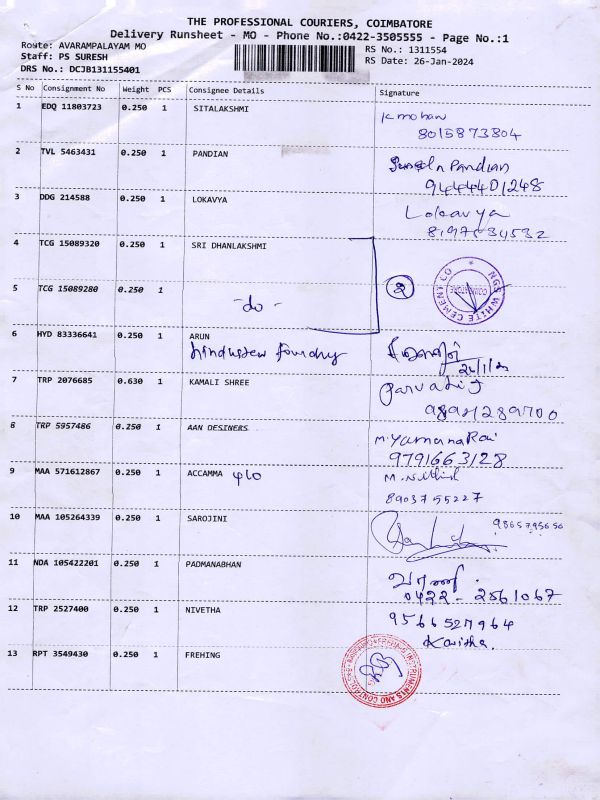 THE PROFESSIONAL COURIERS, COIMBATORE
Delivery Runsheet - MO - Phone No.:0422-3505555 - Page No.:1
Route: AVARAMPALAYAM MO
RS No.: 1311554
Staff: PS SURESH
RS Date: 26-Jan-2024
DRS No.: DCJB131155401
S No Consignment No Weight PCS Consignee Details Signature
1 EDQ 11803723 0.250 1 SITALAKSHMI K mohan
8015873304
2 TVL 5463431 0.250 1 PANDIAN Pandian
9444401248
3 DDG 214588 0.250 1 LOKAVYA Lokavya
4 TCG 15089320 0.250 1 SRI DHANLAKSHMI
NGS WHITE CEMENT CO
COIMBATORE
5 TCG 15089280 0.250 1 - do - 2
6 HYD 83336641 0.250 1 ARUN
hindustan foundry
7 TRP 2076685 0.630 1 KAMALI SHREE Parvathi
8 TRP 5957486 0.250 1 AAN DESINERS M.Yamuna Rai
9791663128
9 MAA 571612867 0.250 1 ACCAMMA M. Nithish
8903755227
10 MAA 105264339 0.250 1 SAROJINI
11 NDA 105422201 0.250 1 PADMANABHAN வாணி
0422 - 2561067
12 TRP 2527400 0.250 1 NIVETHA 9566527964
Kavitha.
13 RPT 3549430 0.250 1 FREHING
INSTRUMENTS AND CONTROLS